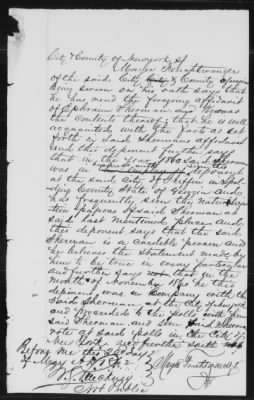 City & County of New York SS
Mayer Feuchtwanger
of the said City & County of New York
being sworn on his oath says that
he has read the foregoing affidavit
of Ephraim Sherman and knows
the contents thereof; that he is well
acquainted with the facts as set
forth in said Shermans affidavit
and this deponent further says
that in the year 1860 said Sherman
was in
at the said City of Griffin in Spal-
ding County State of Georgia and
has frequently seen the Naturaliza-
tion papers of said Sherman at
said last mentioned place and
this deponent says that the said
Sherman is a credible person and
he believes the statement made by
him to be true in every particular
and further says that in the
month of November 1860 he this
deponent was in Company with the
said Sherman at the City of New York
and proceeded to the polls with him
said Sherman and seen said Sherman
vote at said polls in the City of
New York and further saith not
Before me this day
of May
Mayer Feuchtwanger
Not Public